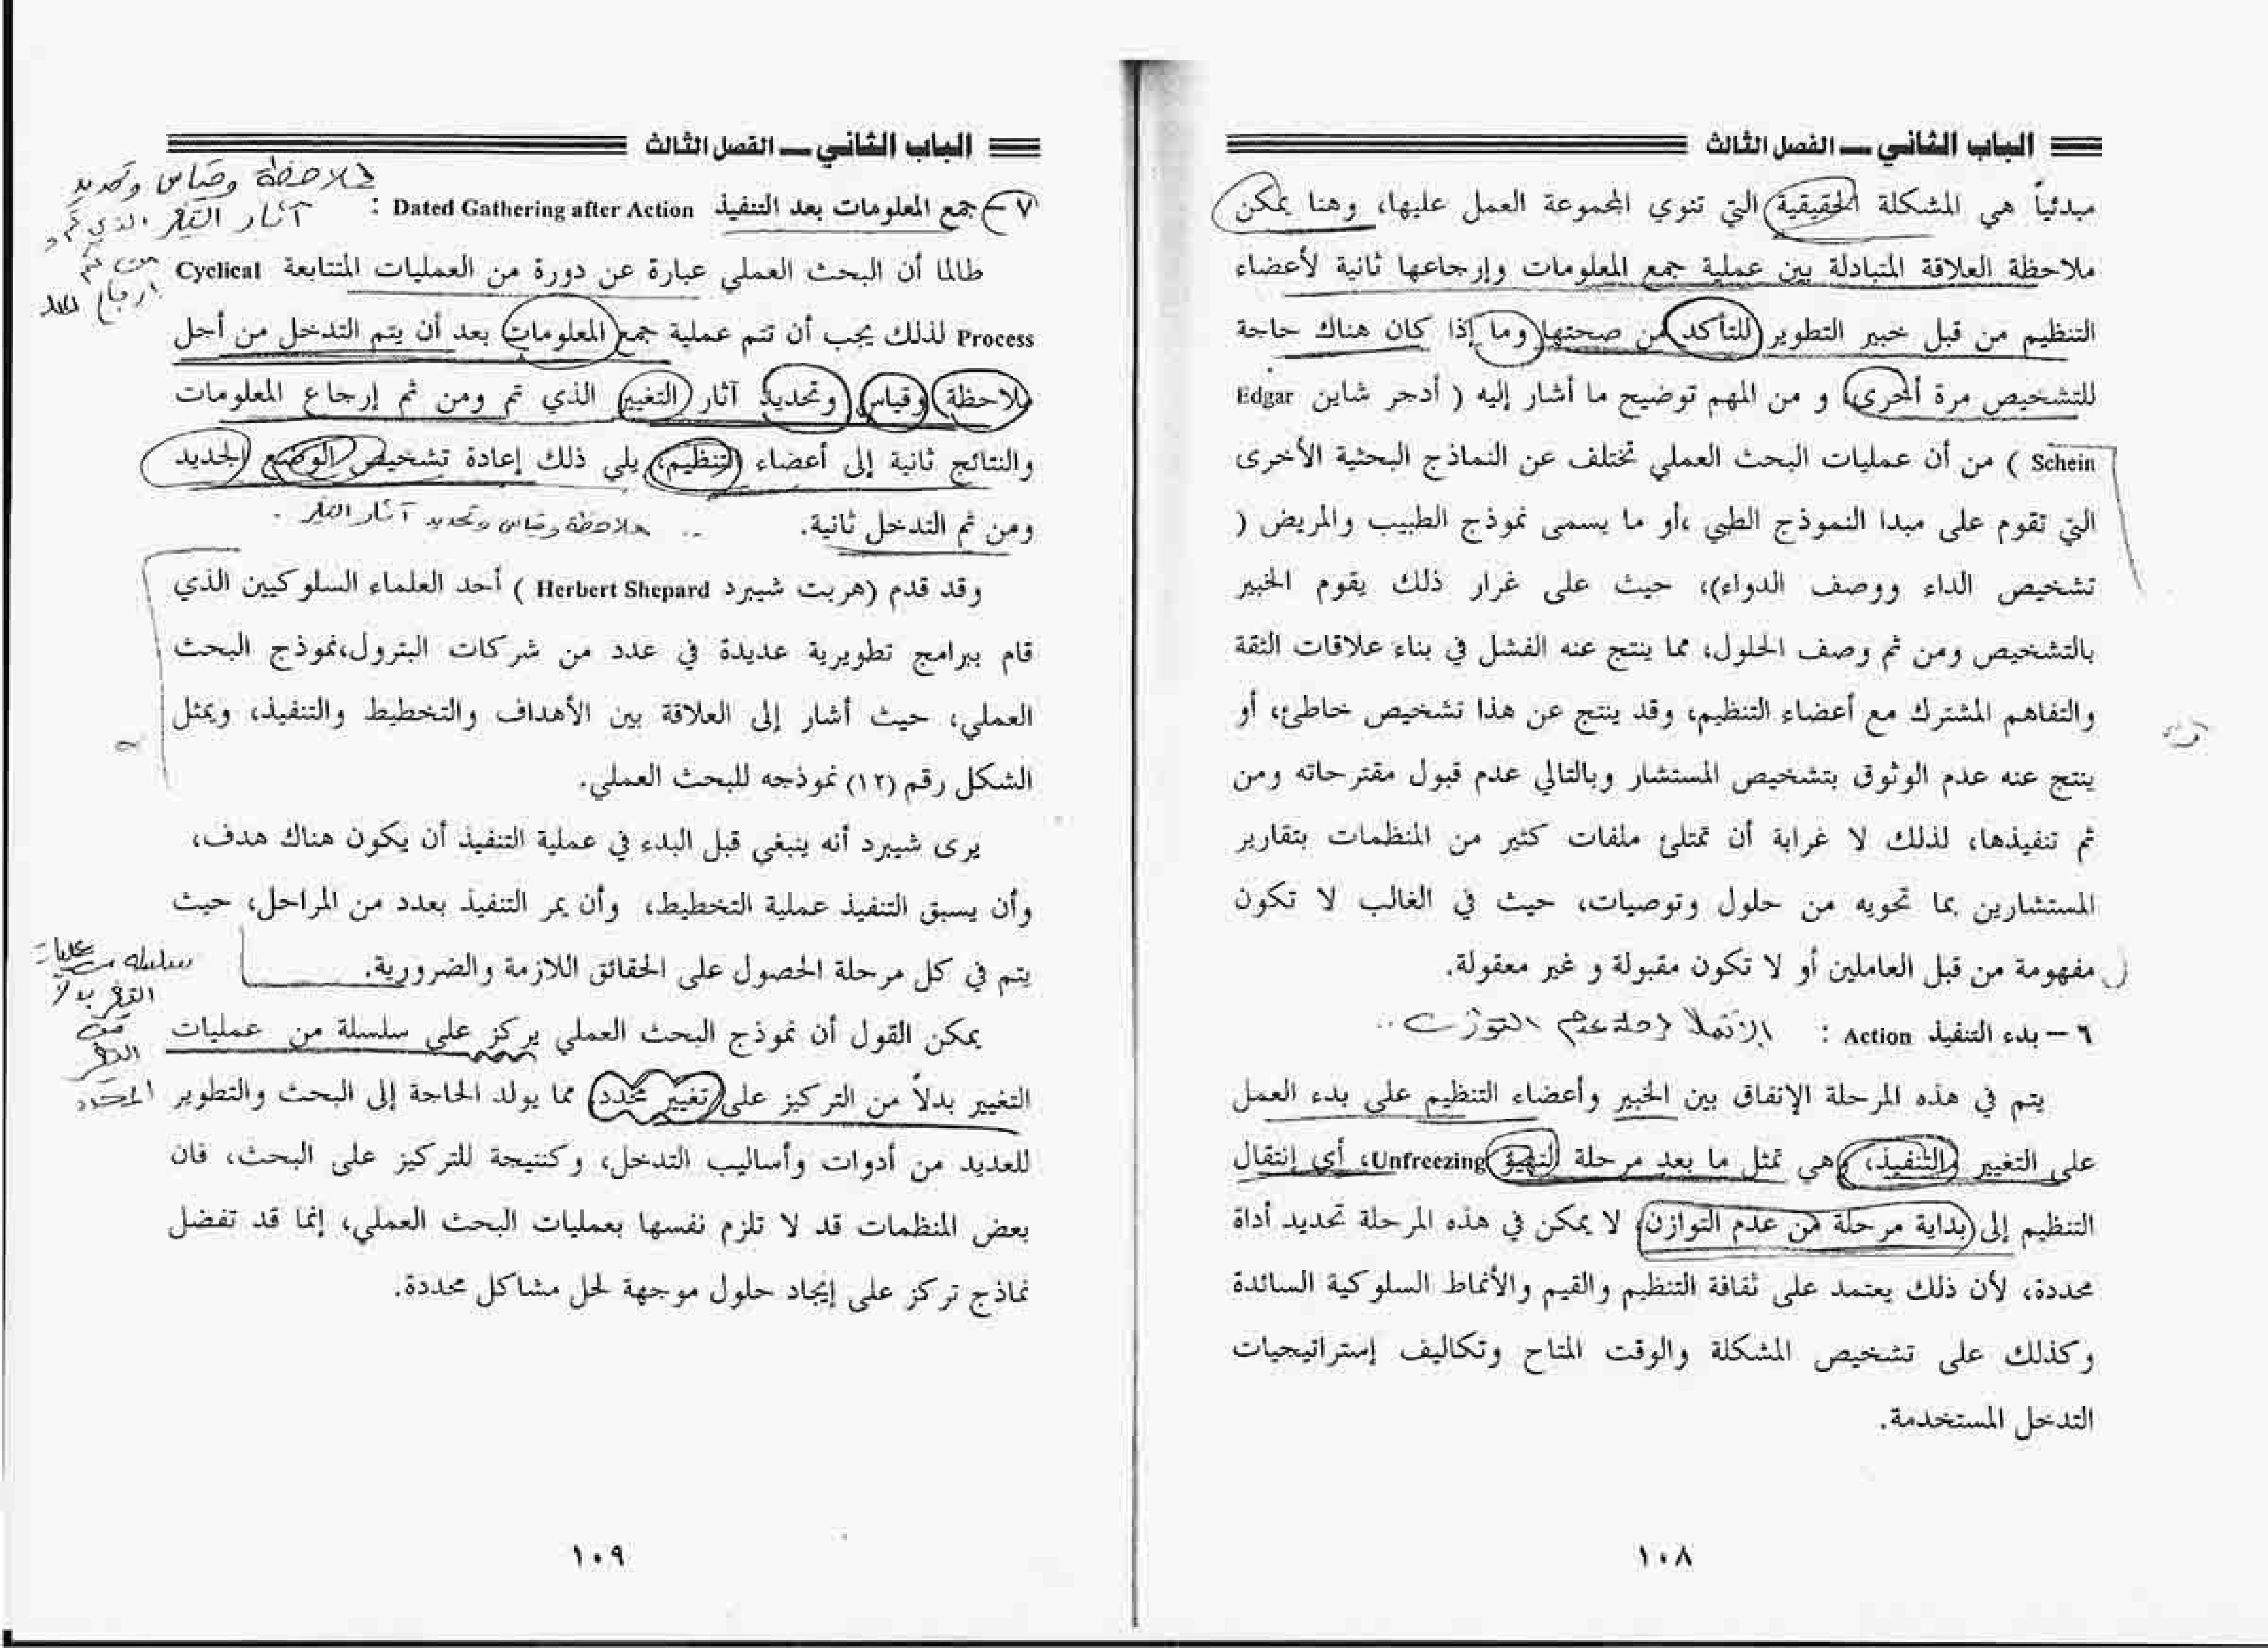 الباب الثاني ــ الفصل الثالث
مبدئياً هي المشكلة الحقيقية التي تنوي المجموعة العمل عليها، وهنا يمكن
ملاحظة العلاقة المتبادلة بين عملية جمع المعلومات وإرجاعها ثانية لأعضاء
التنظيم من قبل خبير التطوير للتأكد من صحتها وما إذا كان هناك حاجة
للتشخيص مرة أخرى، و من المهم توضيح ما أشار إليه ( أدجر شاين Edgar
Schein ) من أن عمليات البحث العملي تختلف عن النماذج البحثية الأخرى
التي تقوم على مبدا النموذج الطبي ،أو ما يسمى نموذج الطبيب والمريض (
تشخيص الداء ووصف الدواء)؛ حيث على غرار ذلك يقوم الخبير
بالتشخيص ومن ثم وصف الحلول، مما ينتج عنه الفشل في بناء علاقات الثقة
والتفاهم المشترك مع أعضاء التنظيم، وقد ينتج عن هذا تشخيص خاطئ، أو
ينتج عنه عدم الوثوق بتشخيص المستشار وبالتالي عدم قبول مقترحاته ومن
ثم تنفيذها، لذلك لا غرابة أن تمتلئ ملفات كثير من المنظمات بتقارير
المستشارين بما تحويه من حلول وتوصيات، حيث في الغالب لا تكون
مفهومة من قبل العاملين أو لا تكون مقبولة و غير معقولة.
٦ – بدء التنفيذ Action :
يتم في هذه المرحلة الإتفاق بين الخبير وأعضاء التنظيم على بدء العمل
على التغيير والتنفيذ، وهي تمثل ما بعد مرحلة التهيؤ Unfreezing، أي إنتقال
التنظيم إلى بداية مرحلة من عدم التوازن، لا يمكن في هذه المرحلة تحديد أداة
محددة، لأن ذلك يعتمد على ثقافة التنظيم والقيم والأنماط السلوكية السائدة
وكذلك على تشخيص المشكلة والوقت المتاح وتكاليف إستراتيجيات
التدخل المستخدمة.
١٠٨
الباب الثاني ــ الفصل الثالث
ملاحظة وقياس وتحديد
آثار التغير الذي تم
٧ – جمع المعلومات بعد التنفيذ Dated Gathering after Action :
من ثم
طالما أن البحث العملي عبارة عن دورة من العمليات المتتابعة Cyclical
Process لذلك يجب أن تتم عملية جمع المعلومات بعد أن يتم التدخل من أجل
ملاحظة وقياس وتحديد آثار التغيير الذي تم ومن ثم إرجاع المعلومات
والنتائج ثانية إلى أعضاء التنظيم، يلي ذلك إعادة تشخيص الوضع الجديد
ومن ثم التدخل ثانية. .. ملاحظة وقياس وتحديد آثار التغير .
وقد قدم (هربت شيبرد Herbert Shepard ) أحد العلماء السلوكيين الذي
قام ببرامج تطويرية عديدة في عدد من شركات البترول،نموذج البحث
العملي، حيث أشار إلى العلاقة بين الأهداف والتخطيط والتنفيذ، ويمثل
الشكل رقم (١٢) نموذجه للبحث العملي.
يرى شيبرد أنه ينبغي قبل البدء في عملية التنفيذ أن يكون هناك هدف،
وأن يسبق التنفيذ عملية التخطيط، وأن يمر التنفيذ بعدد من المراحل، حيث
يتم في كل مرحلة الحصول على الحقائق اللازمة والضرورية.
سلسلة من عمليات
التغير بدلا
من
المحدد
يمكن القول أن نموذج البحث العملي يركز على سلسلة من عمليات
التغيير بدلاً من التركيز على تغيير محدد مما يولد الحاجة إلى البحث والتطوير
للعديد من أدوات وأساليب التدخل، وكنتيجة للتركيز على البحث، فان
بعض المنظمات قد لا تلزم نفسها بعمليات البحث العملي، إنما قد تفضل
نماذج تركز على إيجاد حلول موجهة لحل مشاكل محددة.
١٠٩